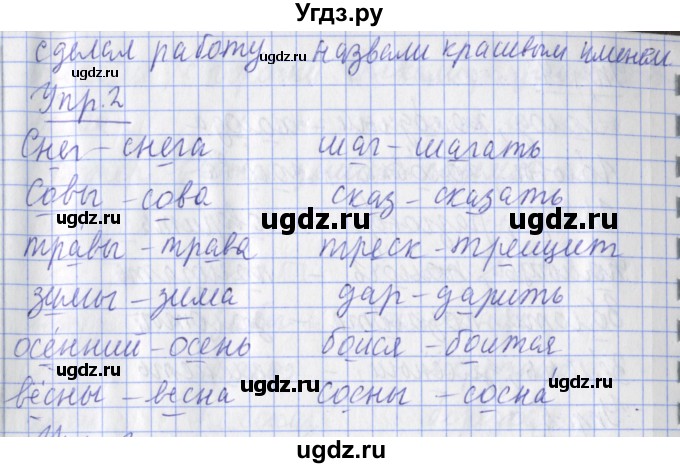 Угдз.ру
сделал работу назвали красивым именем
Упр. 2
Снег - снега шаг - шагать
Совы - сова сказ - сказать
травы - трава треск - трещит
зимы - зима дар - дарить
осенний - осень бойся - боится
вёсны - весна сосны - сосна
ugdz.ru ugdz.ru ugdz.ru ugdz.ru